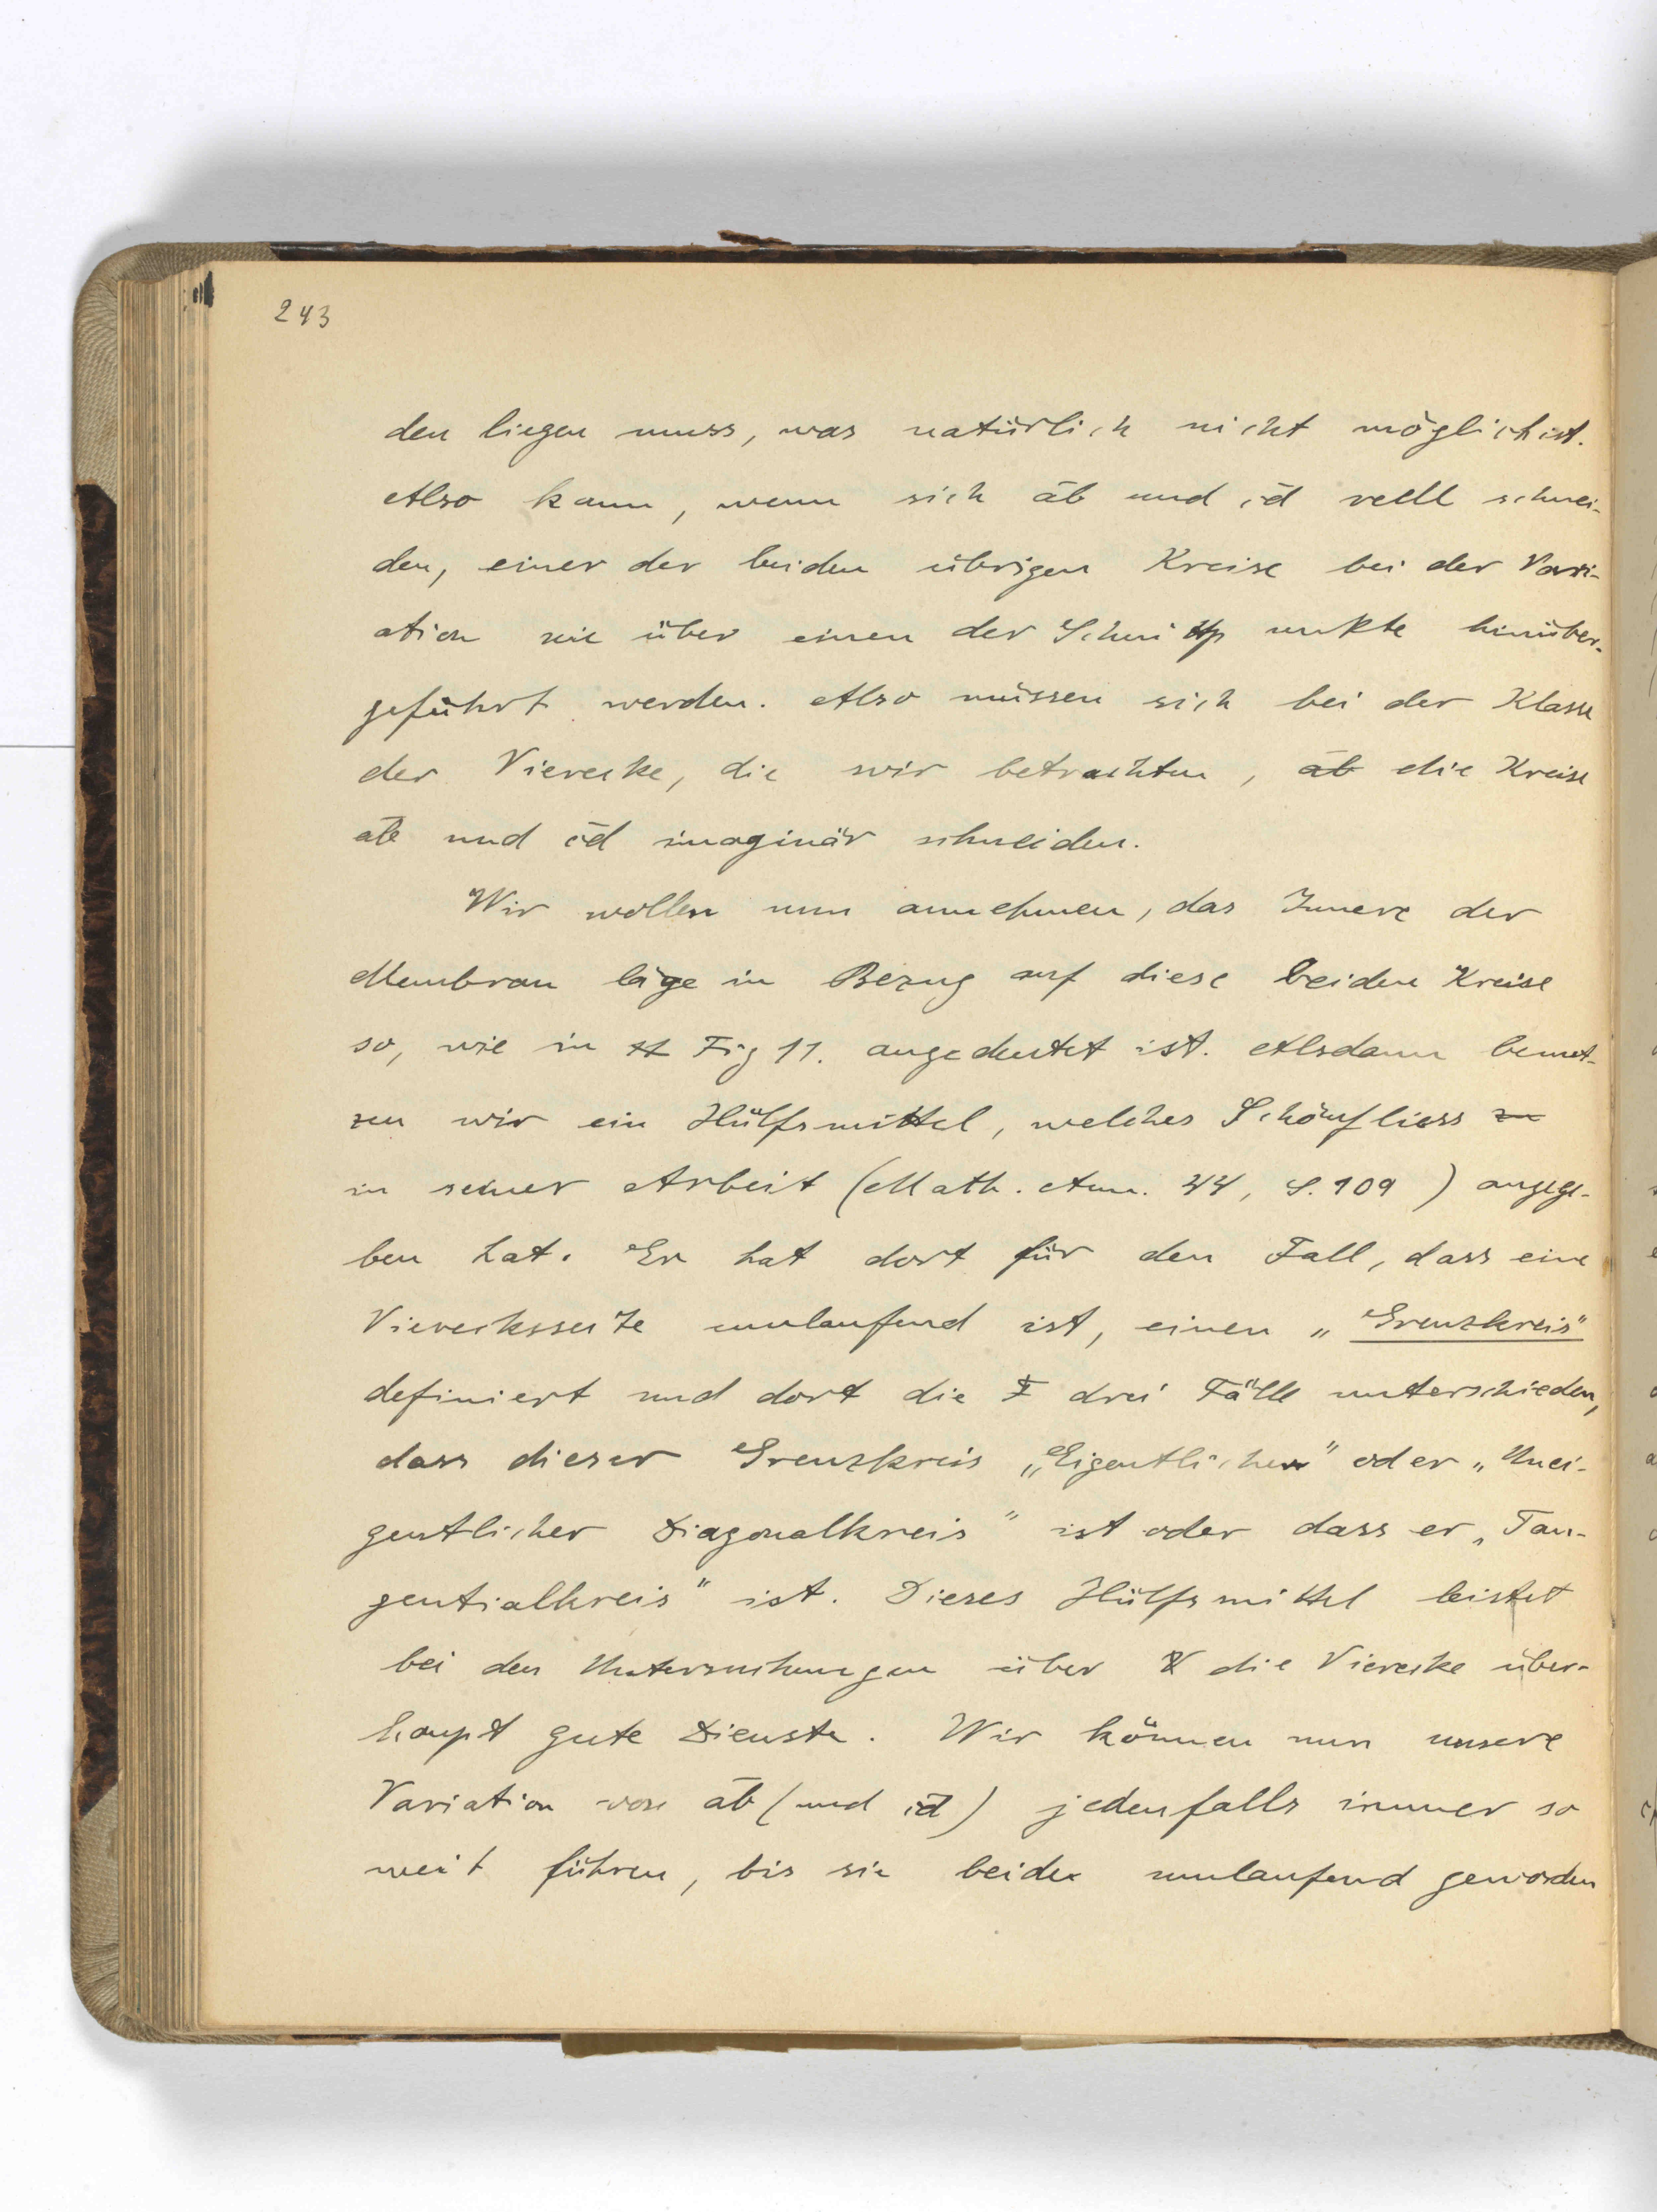 243
den liegen muss, was natürlich nicht möglich ist.
Also kann, wenn sich a̅b̅ und c̅d̅ reell schnei-
den, einer der beiden übrigen Kreise bei der Vari-
ation nie über einen der Schnittpunkte hinüber-
geführt werden. Also müssen sich bei der Klasse
der Vierecke, die wir betrachten, a̅b̅ die Kreise
a̅b̅ und c̅d̅ imaginär schneiden.
Wir wollen nun annehmen, das Innere der
Membran läge in Bezug auf diese beiden Kreise
so, wie in Fig 11. angedeutet ist. Alsdann benut-
zen wir ein Hülfsmittel, welches Schönfliess zu
in seiner Arbeit (Math. Ann. 44, S. 109 ) angege-
ben hat. Er hat dort für den Fall, dass eine
Vierecksseite umlaufend ist, einen „Grenzkreis"
definiert und dort die F drei Fälle unterschieden,
dass dieser Grenzkreis „Eigentlicher" oder „Unei-
gentlicher Diagonalkreis" ist oder dass er „Tan-
gentialkreis" ist. Dieses Hülfsmittel leistet
bei den Untersuchungen über V die Vierecke über-
haupt gute Dienste. Wir können nun unsere
Variation von a̅b̅ (und c̅d̅) jedenfalls immer so
weit führen, bis sie beide umlaufend geworden